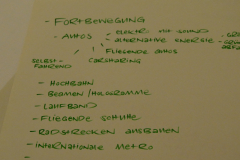 - FORTBEWEGUNG
- AUTOS
ELEKTR. MIT SOUND
ALTERNATIVE ENERGIE
FLIEGENDE AUTOS
SELBST-
FAHREND
CARSHARING
- HOCHBAHN
- BEAMEN / HOLOGRAMME
- LAUFBAND
- FLIEGENDE SCHUHE
- RADSTRECKEN AUSBAUEN
- INTERNATIONALE METRO
-